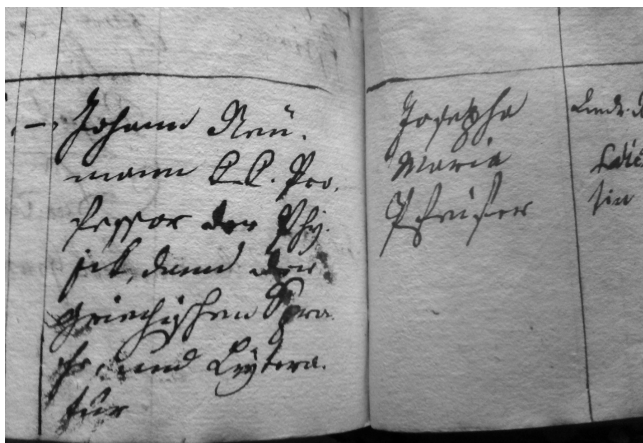 Johann Neu-
mann k.k. Pro-
fessor der Phy-
sik, dann der
griechischen Spra-
che, und Lytera-
tur
Josepha
Maria
Pfeiffer